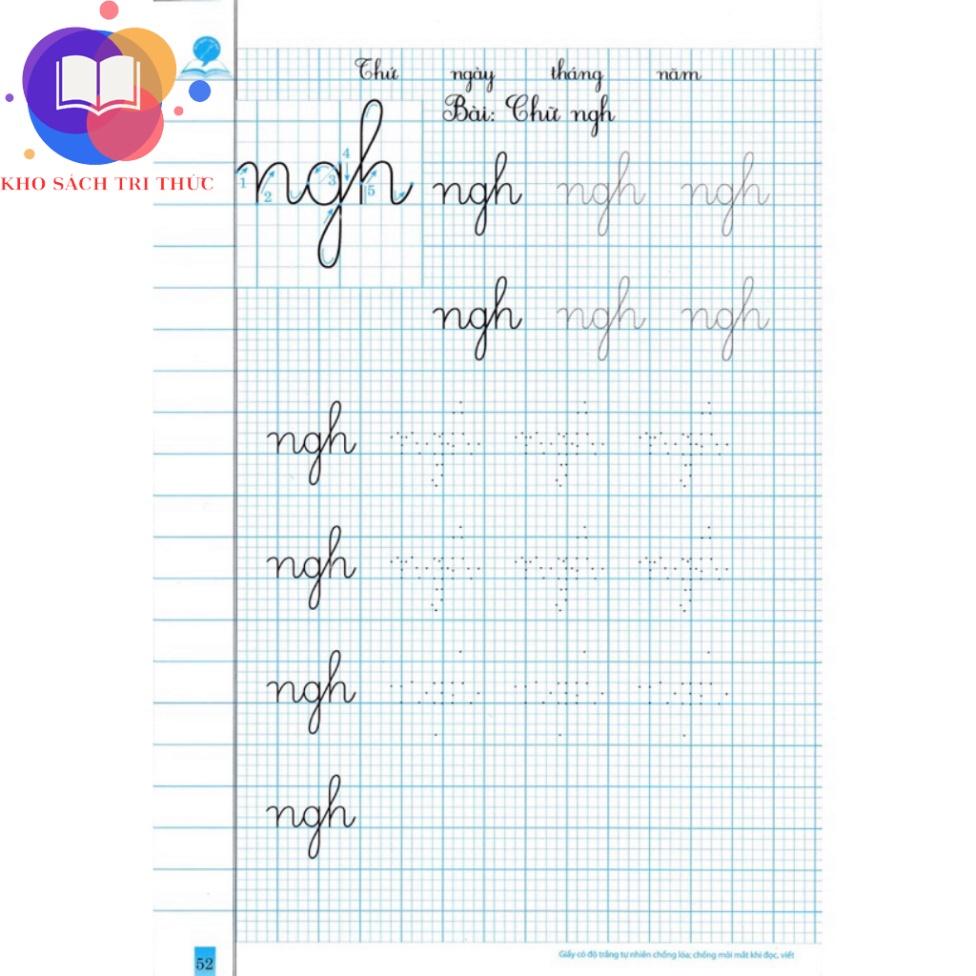 Thứ ngày tháng năm
Bài: Chữ ngh
KHO SÁCH TRI THỨC
1 2 3 4 5
ngh ngh ngh ngh
ngh ngh ngh
ngh
ngh
ngh
ngh
Giấy có độ trắng tự nhiên chống lóa; chống mỏi mắt khi đọc, viết
52